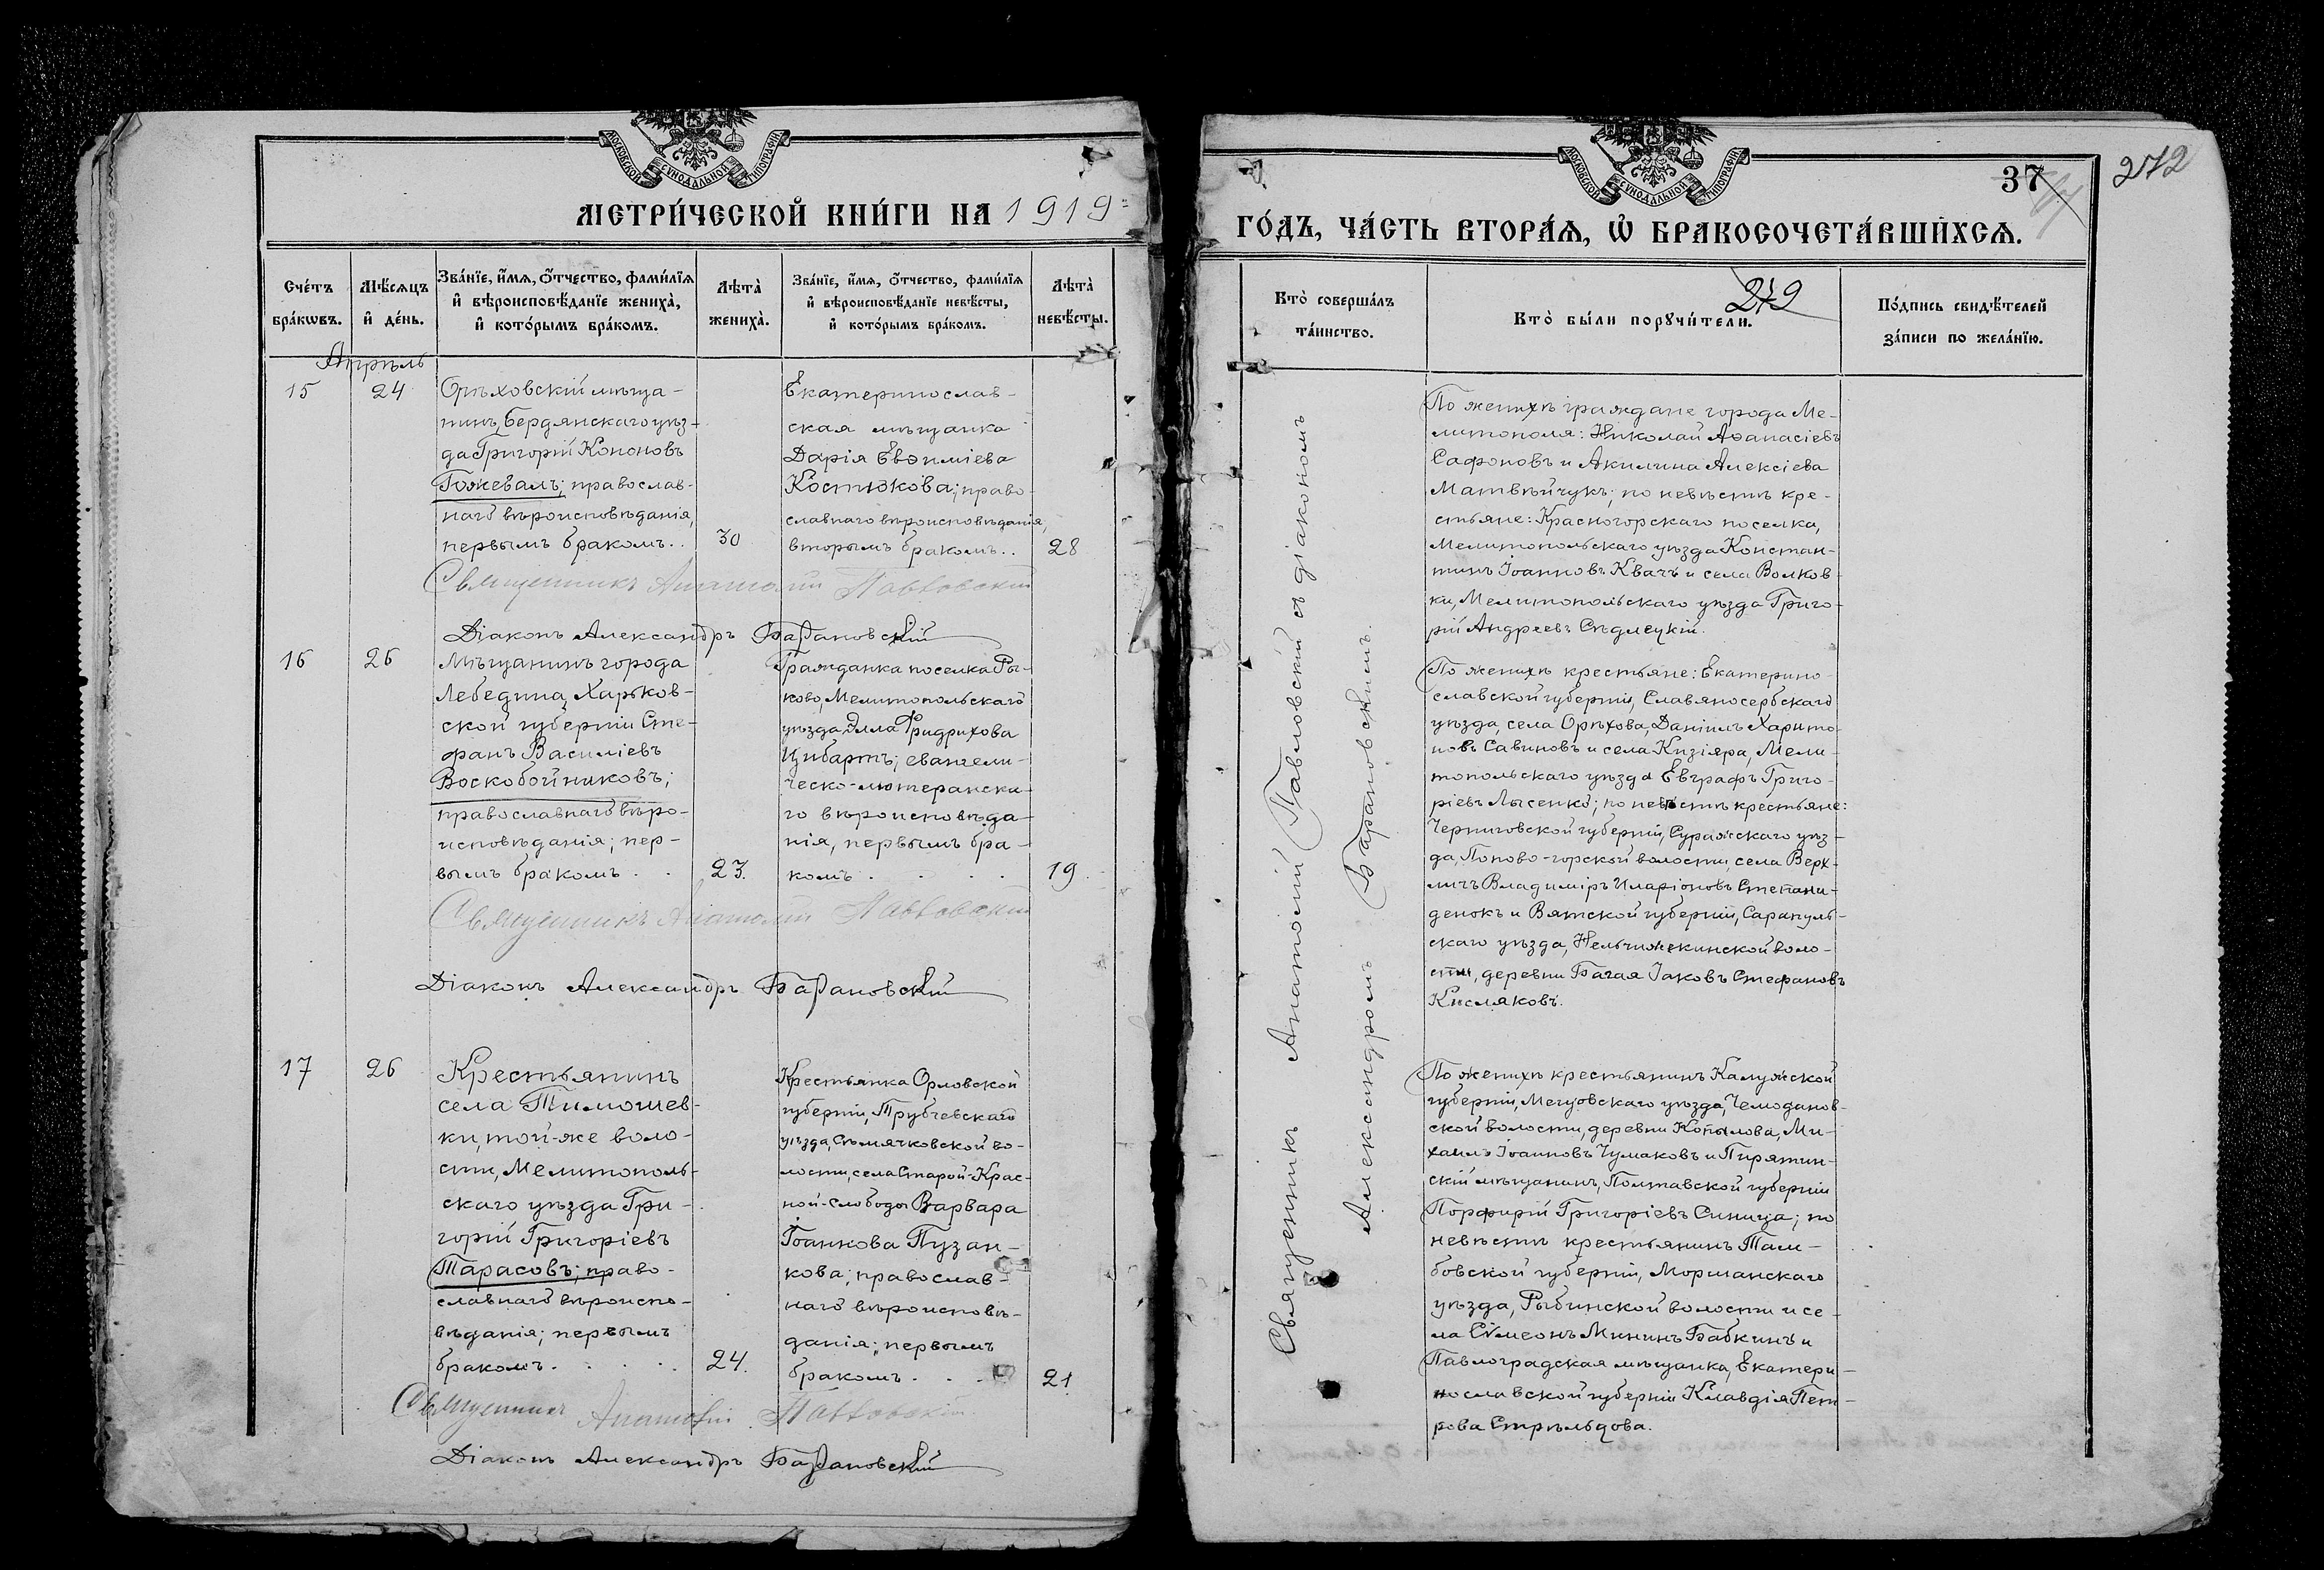 МОСКОВСКОЙ СѴНОДАЛЬНОЙ ТИПОГРАФІИ
МЕТРИ́ЧЕСКОЙ КНИ́ГИ НА 1919
Сче́тъ бра́кѡвъ.
Мѣ́сяцъ и҆ де́нь.
Зва́нїе, и҆́мѧ, ѻ҆́тчество, фами́лїѧ
и҆ вѣроисповѣ́данїе жениха̀,
и҆ кото́рымъ бра́комъ.
Лѣта̀ жениха̀.
Зва́нїе, и҆́мѧ, ѻ҆́тчество, фами́лїѧ
и҆ вѣроисповѣ́данїе невѣ́сты,
и҆ кото́рымъ бра́комъ.
Лѣта̀ невѣ́сты.
Апрѣль
15
24
Орѣховскій мѣща-
нинъ, Бердянскаго уѣз-
да Григорій Кононовъ
Гожеваль; православ-
наго вѣроисповѣданія,
первымъ бракомъ..
30
Екатеринослав-
ская мѣщанка
Дарія Евѳиміева
Костюкова; право-
славнаго вѣроисповѣданія,
вторымъ бракомъ..
28
Священникъ Анатолій Павловскій
Діаконъ Александръ Барановскій
16
26
Мѣщанинъ города
Лебедина, Харьков-
ской губерніи Сте-
фанъ Василіевъ
Воскобойниковъ;
православнаго вѣро-
исповѣданія; пер-
вымъ бракомъ . .
23.
Гражданка поселка Ры-
ково, Мелитопольскаго
уѣзда Элла Фридрихова
Цибартъ; евангели-
ческо-лютеранска-
го вѣроисповѣда-
нія, первымъ бра-
комъ . . . .
19
Священникъ Анатолій Павловскій
Діаконъ Александръ Барановскій
17
26
Крестьянинъ
села Тимошев-
ки, той-же воло-
сти, Мелитополь-
скаго уѣзда Гри-
горій Григоріевъ
Тарасовъ; право-
славнаго вѣроиспо-
вѣданія; первымъ
бракомъ . . . .
24.
Крестьянка Орловской
губерніи, Трубчевскаго
уѣзда, Сѣмячковской во-
лости, села Старой-Крас-
ной-Слободы Варвара
Іоаннова Пузан-
кова; православ-
наго вѣроисповѣ-
данія; первымъ
бракомъ . . .
21
Священникъ Анатолій Павловскій
Діаконъ Александръ Барановскій
МОСКОВСКОЙ СѴНОДАЛЬНОЙ ТИПОГРАФІИ
37
272
ГО́ДЪ, ЧА́СТЬ ВТОРА́Ѧ, Ѡ҆ БРАКОСОЧЕТА́ВШИХСѦ.
272
Кто̀ соверша́лъ
та́инство.
Кто̀ бы́ли порꙋчи́тели.
По́дпись свидѣ́телей
за́писи по жела́нїю.
Священникъ Анатолій Павловскій съ діакономъ
Александромъ Барановскимъ.
По женихѣ граждане города Ме-
литополя: Николай Аѳанасіевъ
Сафоновъ и Акилина Алексіева
Матвѣйчукъ; по невѣстѣ кре-
стьяне: Красногорскаго поселка,
Мелитопольскаго уѣзда Констан-
тинъ Іоанновъ Квачъ и села Волков-
ки, Мелитопольскаго уѣзда Григо-
рій Андреевъ Сѣдлецкій.
По женихѣ крестьяне: Екатерино-
славской губерніи, Славяносербскаго
уѣзда, села Орѣхова, Даніилъ Харито-
новъ Савиновъ и села Кизіяра, Мели-
топольскаго уѣзда Евграфъ Григо-
ріевъ Лысенко; по невѣстѣ крестьяне:
Черниговской губерніи, Суражскаго уѣз-
да, Попово-горской волости, села Верх-
личъ Владиміръ Иларіоновъ Степани-
денокъ и Вятской губерніи, Сарапуль-
скаго уѣзда, воло-
сти, деревни Багая Іаковъ Стефановъ
Кисляковъ.
По женихѣ крестьянинъ Калужской
губерніи, Мещовскаго уѣзда, Чемоданов-
ской волости, деревни Копылова, Ми-
хаилъ Іоанновъ Чумаковъ и Пирятин-
скій мѣщанинъ, Полтавской губерніи
Порфирій Григоріевъ Синица; по
невѣстѣ крестьянинъ Там-
бовской губерніи, Моршанскаго
уѣзда, Рыбинской волости и се-
ла Сѵмеонъ Мининъ Бабкинъ и
Павлоградская мѣщанка, Екатери-
нославской губерніи Клавдія Пет-
рова Стрѣльцова.